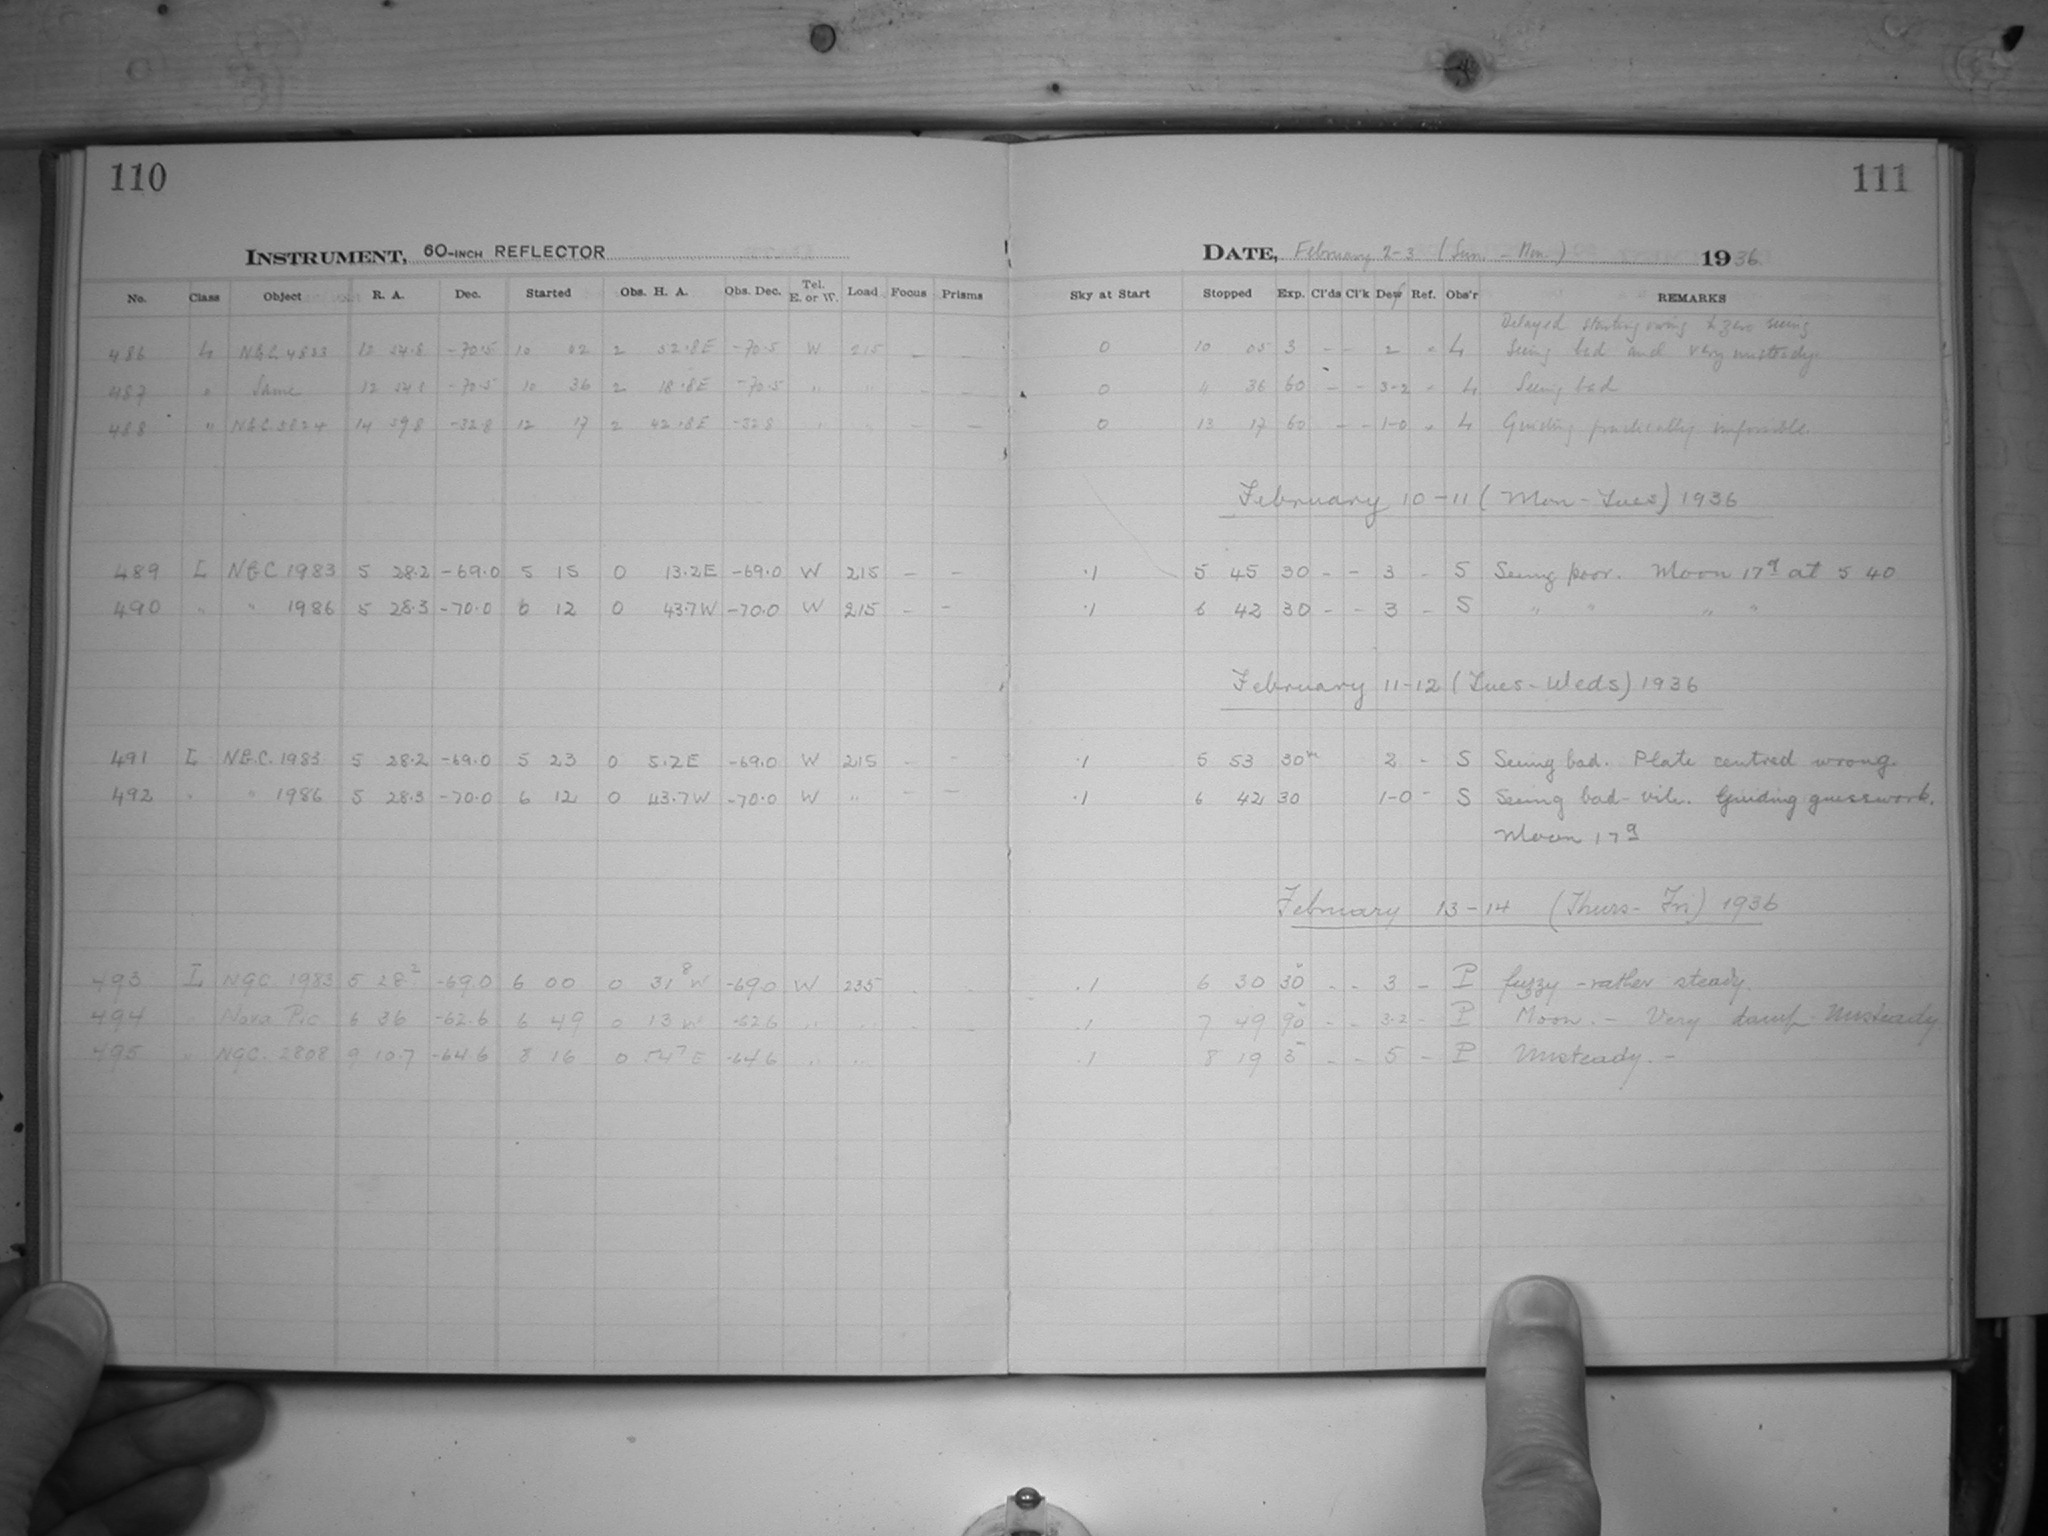 110
111
INSTRUMENT, 60-INCH REFLECTOR
DATE, February 2-3 (Sun. - Mon.) 1936
No. Class Object R. A. Dec. Started Obs. H. A. Obs. Dec. Tel. E. or W. Load Focus Prisms Sky at Start Stopped Exp. Cl'ds Cl'k Dew Ref. Obs'r REMARKS
Delayed starting owing to zero seeing
486 L NGC 4833 12 54.8 -70.5 10 02 2 52.8E -70.5 W 215 - - 0 10 05 3 - - 2 - L Seeing bad and very unsteady.
487 " Same 12 54.8 -70.5 10 36 2 18.8E -70.5 " " - - 0 11 36 60 - - 3-2 - L Seeing bad
488 " NGC 5824 14 59.8 -32.8 12 17 2 42.8E -32.8 " " - - 0 13 17 60 - - 1-0 - L Guiding practically impossible.
February 10-11 (Mon-Tues) 1936
489 L NGC 1983 5 28.2 -69.0 5 15 0 13.2E -69.0 W 215 - - .1 5 45 30 - - 3 - S Seeing poor. Moon 17d at 5 40
490 " " 1986 5 28.3 -70.0 6 12 0 43.7W -70.0 W 215 - - .1 6 42 30 - - 3 - S " " " "
February 11-12 (Tues-Weds) 1936
491 L NGC. 1983 5 28.2 -69.0 5 23 0 5.2E -69.0 W 215 - - .1 5 53 30m 2 - S Seeing bad. Plate centred wrong.
492 " " 1986 5 28.3 -70.0 6 12 0 43.7W -70.0 W " - - .1 6 42 30 1-0 - S Seeing bad-vile. Guiding guesswork.
Moon 17d
February 13-14 (Thurs-Fri) 1936
493 L NGC. 1983 5 28.2 -69.0 6 00 0 31.8 W -69.0 W 235 - - .1 6 30 30 - - 3 - P fuzzy - rather steady.
494 " Nova Pic 6 36 -62.6 6 49 0 13 W -62.6 " " - .1 7 49 90 - - 3-2 - P Moon. - Very damp - Unsteady
495 " NGC. 2808 9 10.7 -64.6 8 16 0 54.7 E -64.6 " " .1 8 19 3 - - 5 - P Unsteady. -